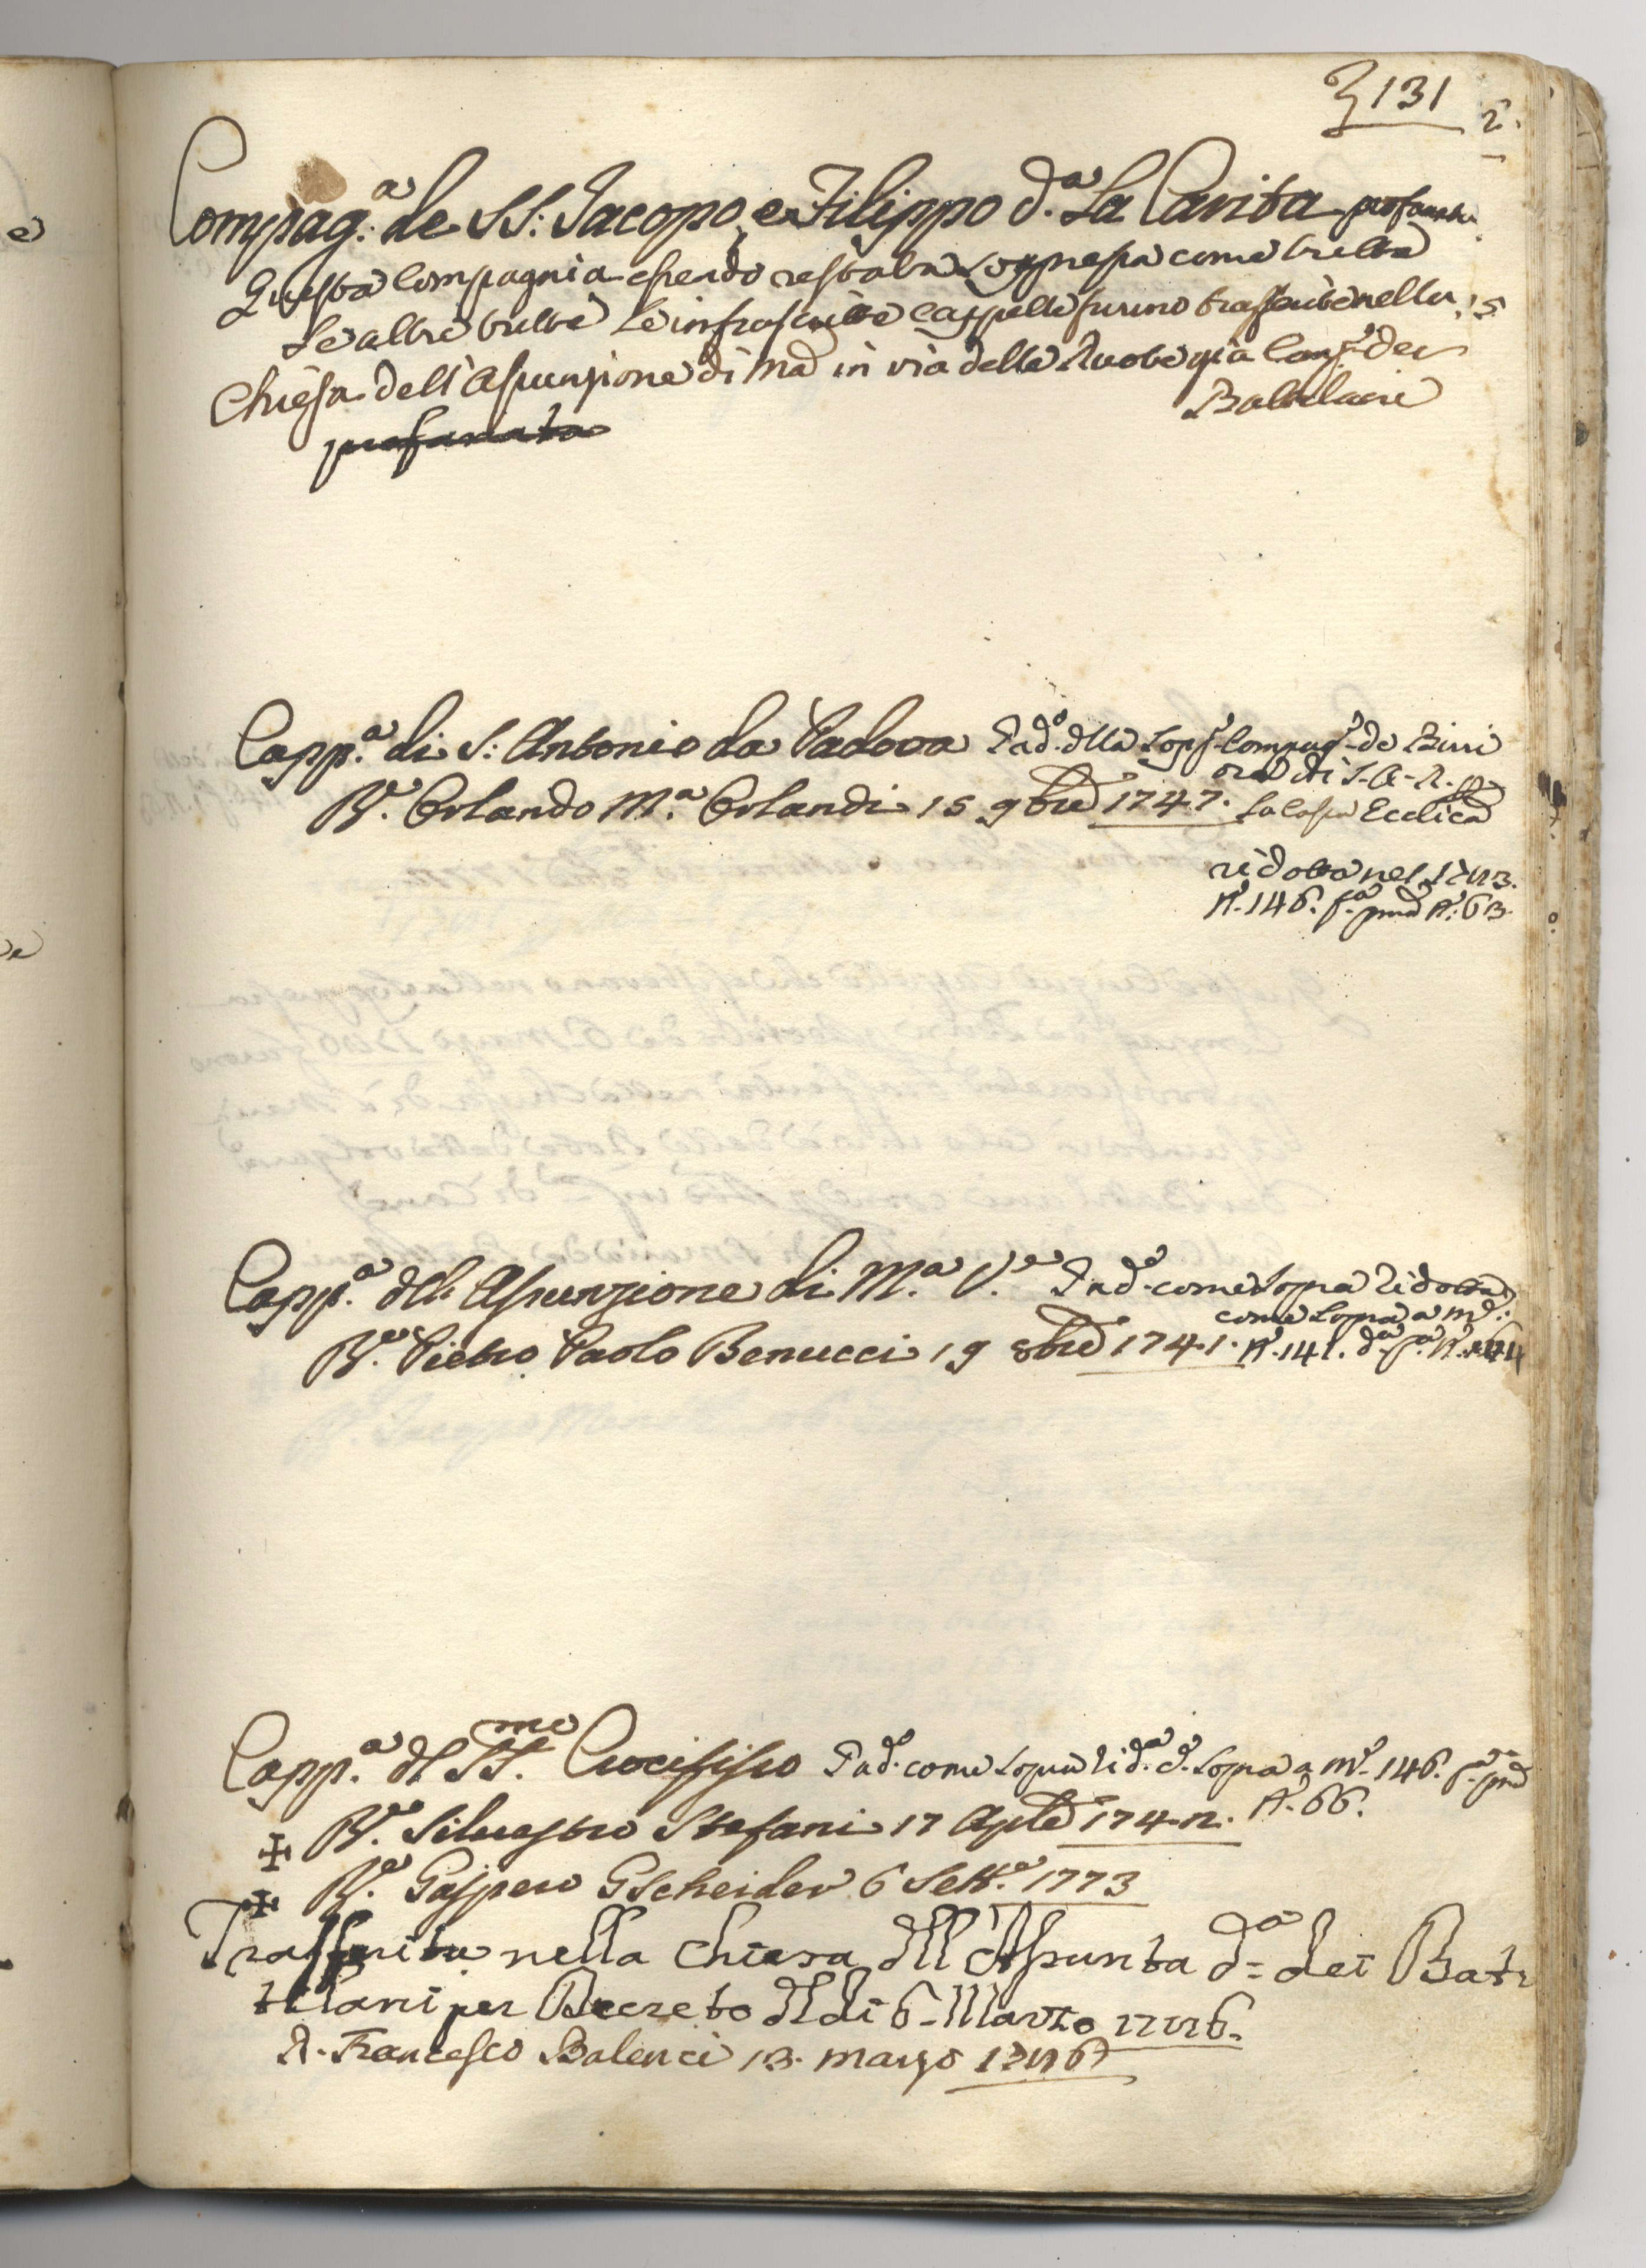 131
2.
Compag.a de SS: Jacopo, e Filippo d.a La Carita profanata
Questa Compagnia essendo restata soppressa come tutte
Le altre tutte le infrascritte Cappelle furino trasferite nella
Chiesa dell'Assunzione di Ma in via delle Ruote già Comp.a dei
Battilani
profanata
Capp.a di S: Antonio da Padova Pad.o della Sop.a Compag.a de Bini
ora di S. A. R. p
R.e Orlando M.a Orlandi 15 9bre 1747. la Cassa Ecclica
ridotta nel 1783.
N.o 146. f.a pma N.o 63.
Capp.a dell Assunzione di M.a V.e Pad.o come sopra ridotta
come sopra a m.e:
R.e Pietro Paolo Benucci 19 8bre 1741. N.o 141. d.a f.a N.o
Capp.a del SS.mo Crocifisso Pad.o come sopra rid.a c.e sopra a m.e 146. f.a pma
N.o 66.
R.e Silvestro Stefani 17 Aple 1742.
R.e Gaspero Gscheider 6 Sett.e 1773
Trasferita nella Chiesa dell'Assunta d.a dei Bat
tilani per Decreto del di 6. Marzo 1786.
R. Francesco Balenci 13. marzo 1786